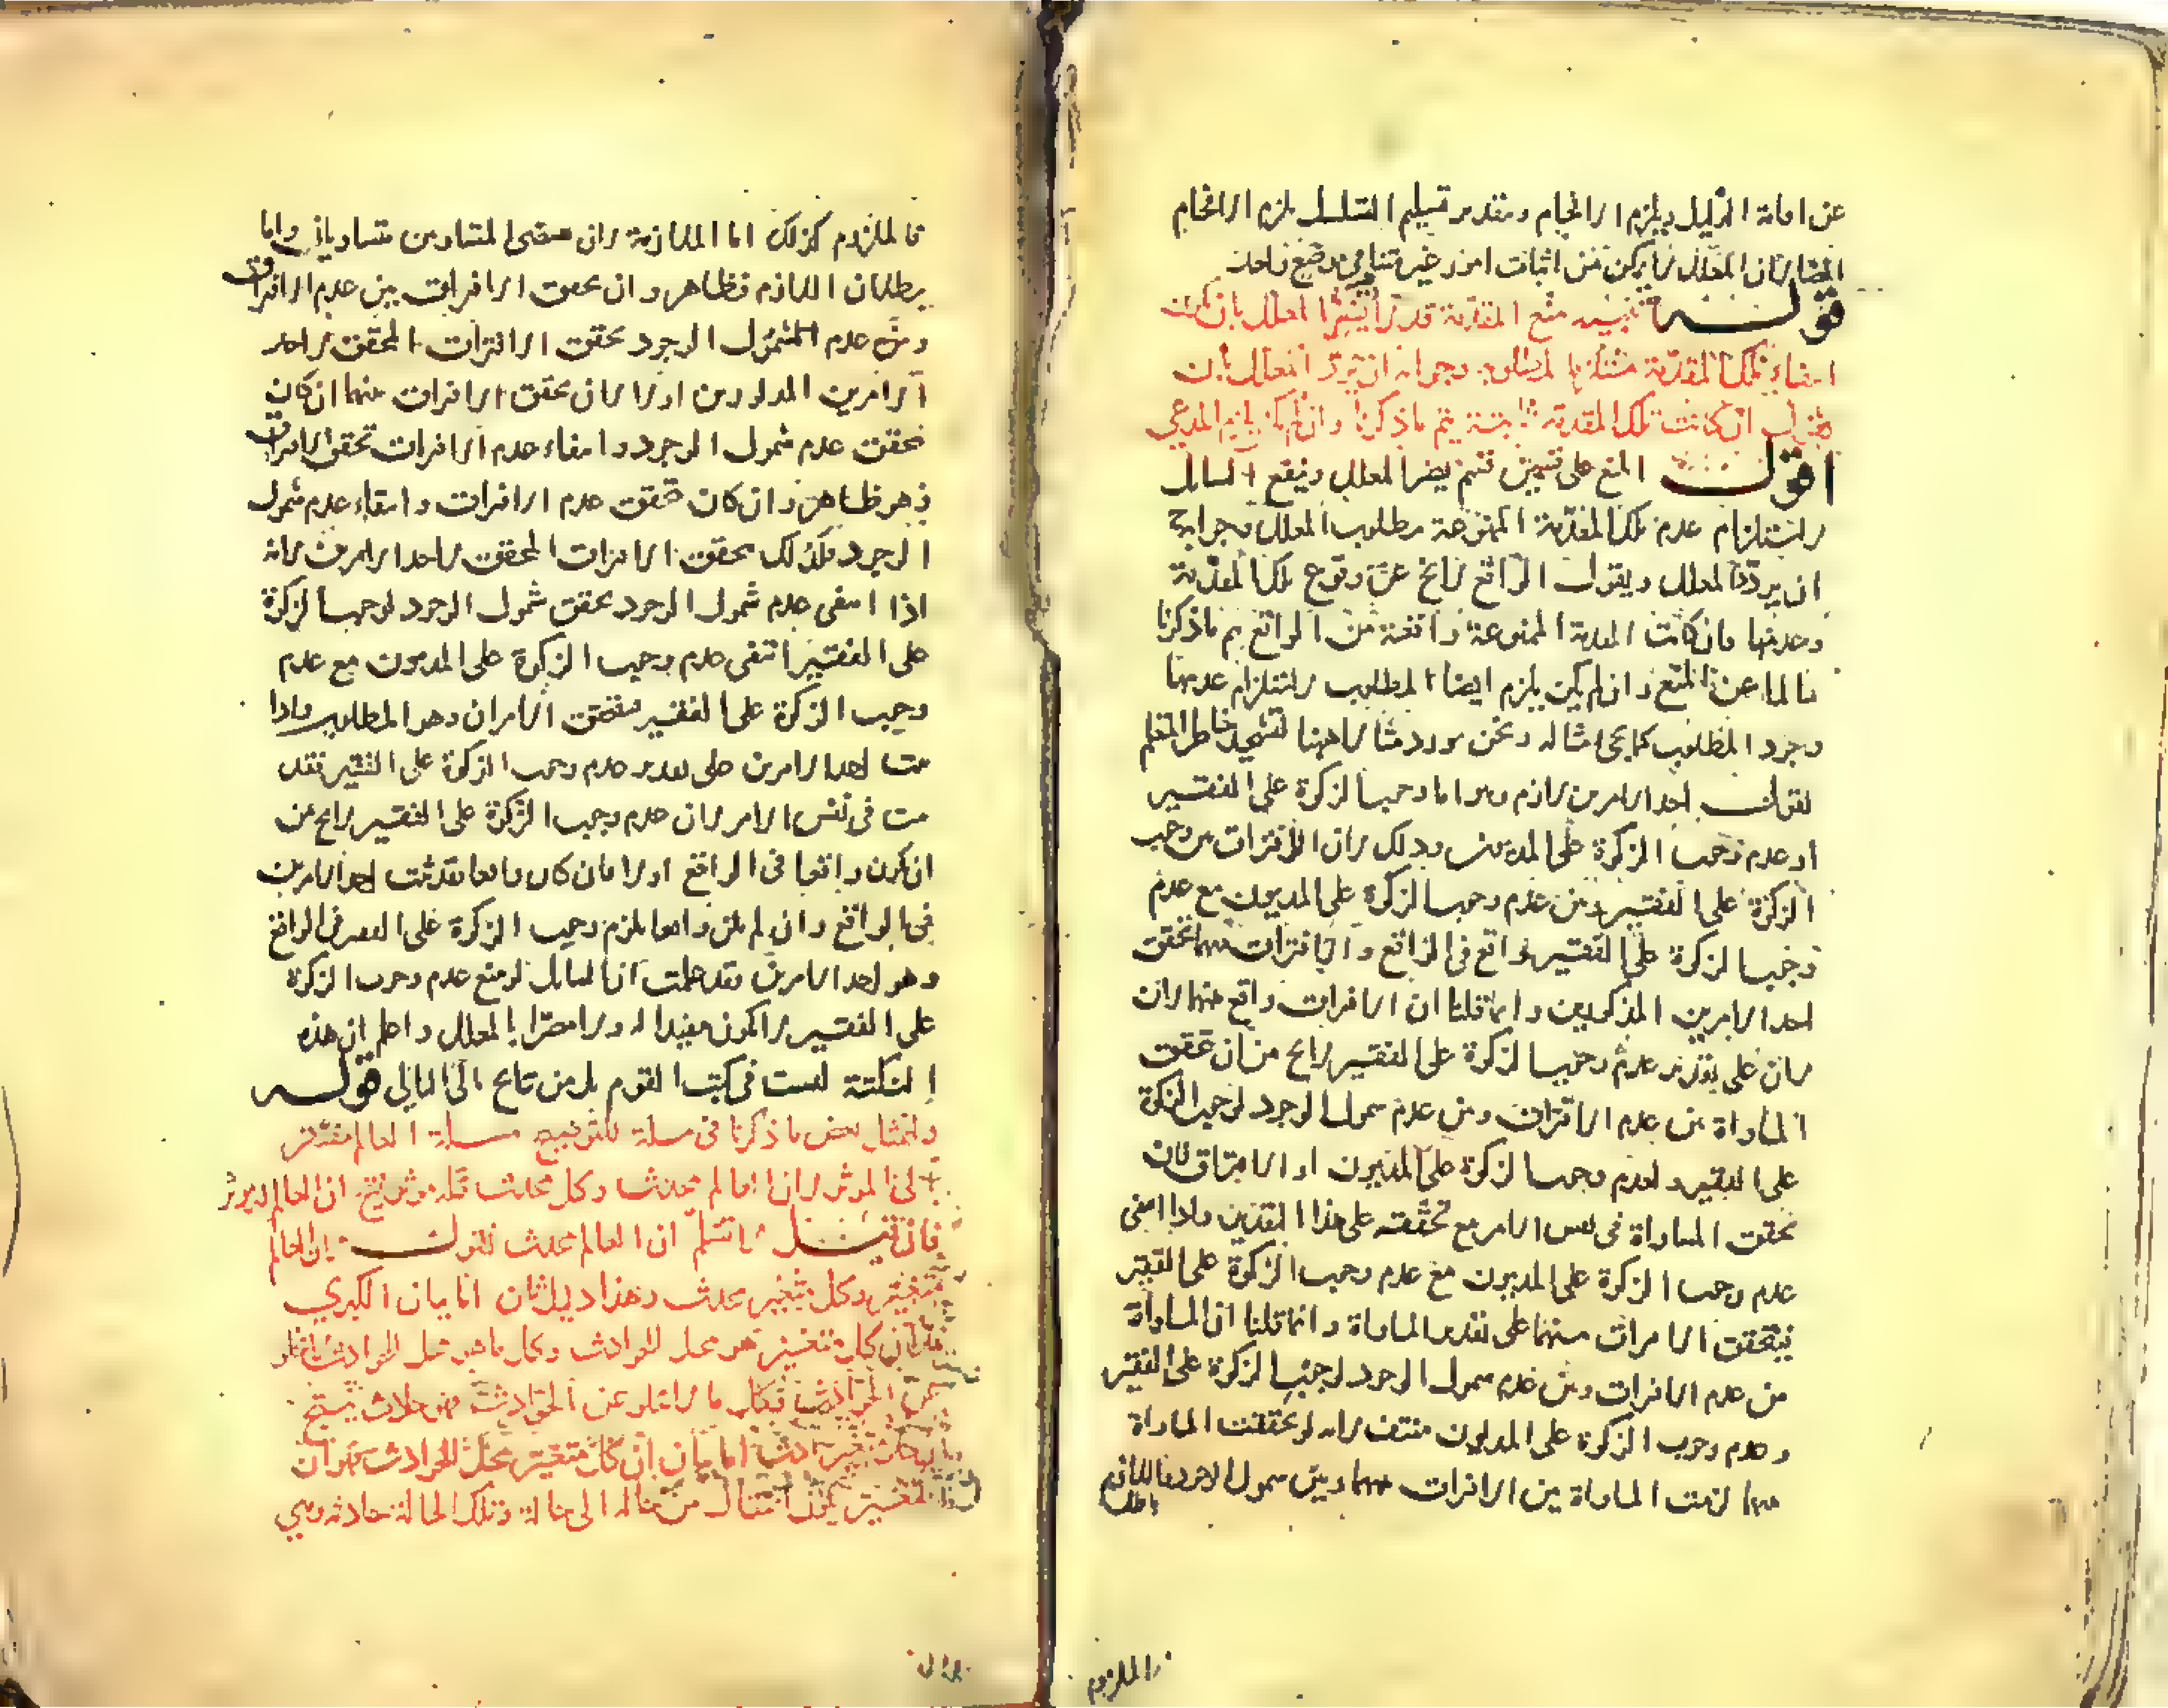 عن اقامة الدليل ويلزم الافحام وبتقدير تسليم التسلسل يلزم الافحام
ايضا لان المعلل لا يمكن من اثبات امور غير متناهية في وضع واحد
قوله تنبيه منع المقدمة قد لا يضر المعلل بان يكون
انتفاء تلك المقدمة مستلزما لمطلوبه وجوابه ان يردد المعلل بان
يقول ان كانت تلك المقدمة ثابتة يتم ما ذكرنا وان لم يكن يلزم المدعى
اقول المنع على قسمين قسم يضر المعلل وينفع السائل
لاستلزام عدم تلك المقدمة الممنوعة مطلوب المعلل وجوابه
ان يردد المعلل ويقول الواقع لا يخ عن وقوع تلك المقدمة
وعدمها فان كانت المقدمة الممنوعة واقعة من الواقع يتم ما ذكرنا
سالما عن المنع وان لم يكن يلزم ايضا المطلوب لاستلزام عدمها
وجود المطلوب كما يجئ مثاله ونحن نورد مثالا ههنا لتشحيذ خاطر المتعلم
فنقول احد الامرين لازم وهو اما وجوب الزكوة على الفقير
او عدم وجوب الزكوة على المديون وذلك لان الافتراق بين وجوب
الزكوة على الفقير وبين عدم وجوب الزكوة على المديون مع عدم
وجوب الزكوة على الفقير واقع في الواقع والافتراق بينهما تحقق
احد الامرين المذكورين وانما قلنا ان الافتراق واقع بينهما لان
لان على تقدير عدم وجوب الزكوة على الفقير لا يخ من ان تحقق
المساواة بين عدم الافتراق وبين عدم شمول الوجود لوجوب الزكوة
على الفقير ولعدم وجوب الزكوة على المديون او الافتراق فان
تحقق المساواة في نفس الامر مع تحققه على هذا التقدير واذا انتفى
عدم وجوب الزكوة على المديون مع عدم وجوب الزكوة على الفقير
فيتحقق الافتراق بينهما على تقدير المساواة وانما قلنا ان المساواة
من عدم الافتراق وبين عدم شمول الوجود لوجوب الزكوة على الفقير
وعدم وجوب الزكوة على المديون منتف لانه لو تحققت المساواة
بينهما لزمت المساواة بين الافتراق بينهما وبين شمول الوجود فاللازم
باطل
فالملزوم
فالملزوم كذلك اما الملازمة فلان نقيضي المتساويين متساويان واما
بطلان اللازم فظاهر وان تحقق الافتراق بين عدم الافتراق
وبين عدم الشمول الوجود تحقق الافتراق المحقق لاحد
الامرين المذكورين اولا لان تحقق الافتراق بينهما ان كان
بتحقق عدم شمول الوجود وانتفاء عدم الافتراق تحقق الافتراق
فهو ظاهر وان كان بتحقق عدم الافتراق وانتفاء عدم شمول
الوجود فكذلك تحقق الافتراق المحقق لاحد الامرين لانه
اذا انتفى عدم شمول الوجود تحقق شمول الوجود لوجوب الزكوة
على الفقير انتفى عدم وجوب الزكوة على المديون مع عدم
وجوب الزكوة على الفقير فتحقق الامران وهو المطلوب واذا
ثبت احد الامرين على تقدير عدم وجوب الزكوة على الفقير فقد
ثبت في نفس الامر لان عدم وجوب الزكوة على الفقير لا يخ من
ان يكون واقعا في الواقع او لا فان كان واقعا فقد ثبت احد الامرين
في الواقع وان لم يكن واقعا يلزم وجوب الزكوة على الفقير في الواقع
وهو احد الامرين فقد علمت ان السائل لو منع عدم وجوب الزكوة
على الفقير لا يكون مفيدا له ولا مضرا بالمعلل واعلم ان هذه
النكتة ليست في كتب القوم بل من نتايج قوله
ولنمثل بعض ما ذكرنا في مسئلة للتوضيح مسئلة العالم مفتقر
الى المؤثر لان العالم محدث وكل محدث فله مؤثر ينتج ان العالم له مؤثر
فان قيل لا نسلم ان العالم محدث فنقول ان العالم
متغير وكل متغير محدث وهذا دليل ثان اما بيان الكبرى
فلان كل متغير هو محل الحوادث وكل ما هو محل الحوادث لا يخلو
عن الحوادث فكل ما لا يخلو عن الحوادث فهو حادث ينتج
كل متغير حادث اما بيان ان كل متغير محل الحوادث فهو ان
المتغير يكون انتقال من حالة الى حالة وتلك الحالة حادثة وهي